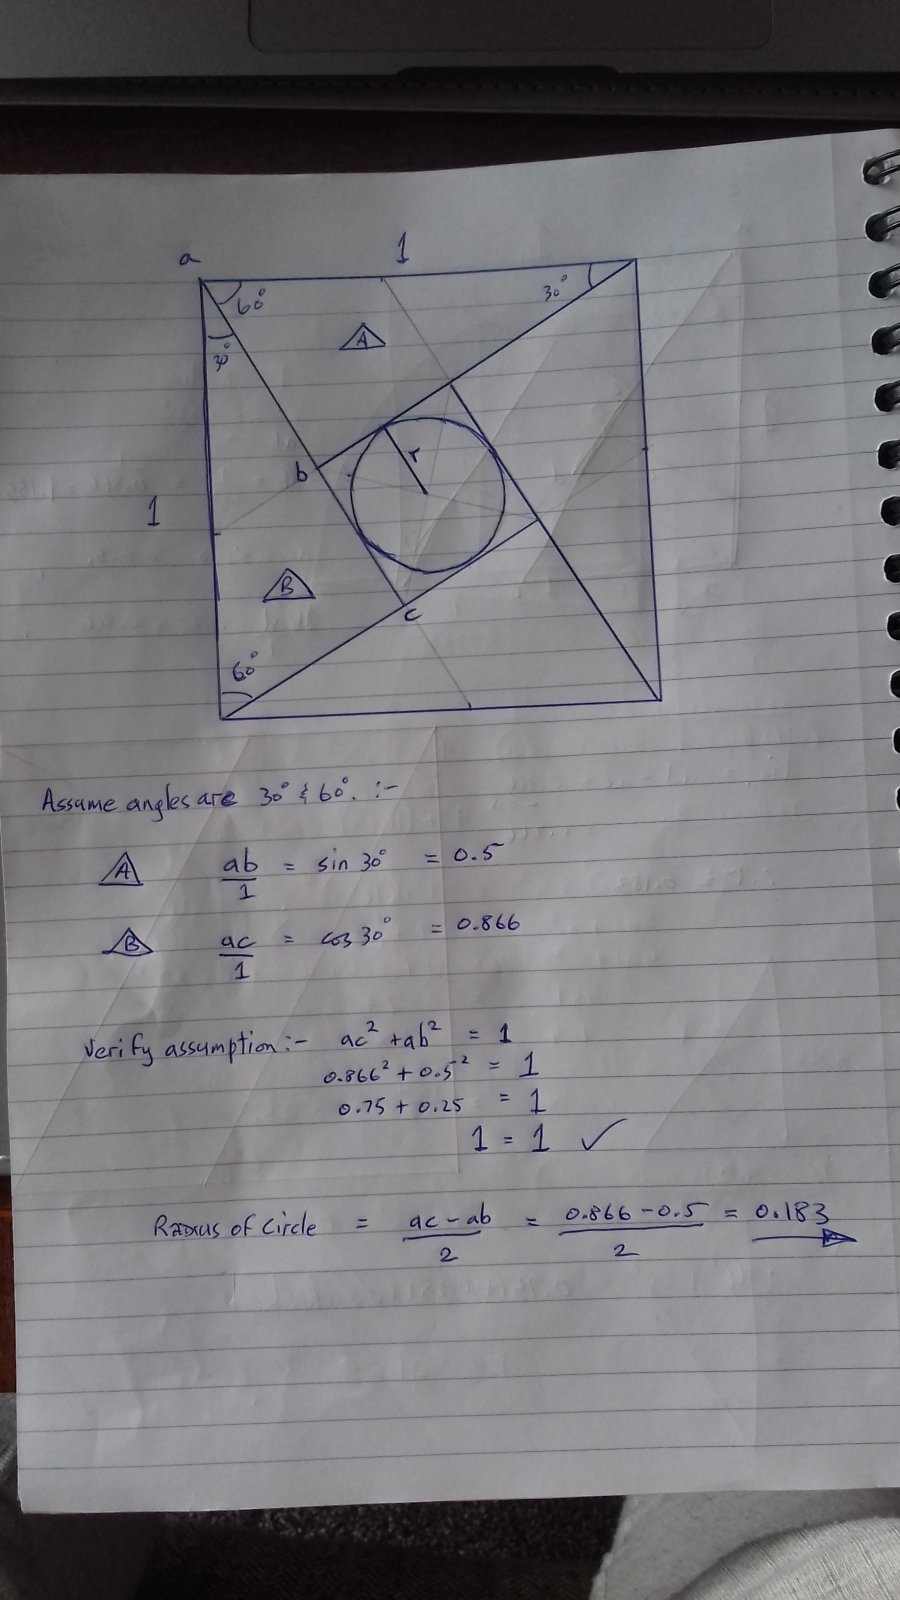 a 1
60°
30°
30°
A
b
r
1
B
c
60°
Assume angles are 30° & 60°. :-
A ab/1 = sin 30° = 0.5
B ac/1 = cos 30° = 0.866
Verify assumption :- ac² + ab² = 1
0.866² + 0.5² = 1
0.75 + 0.25 = 1
1 = 1 ✓
Radius of circle = ac - ab/2 = 0.866 - 0.5/2 = 0.183